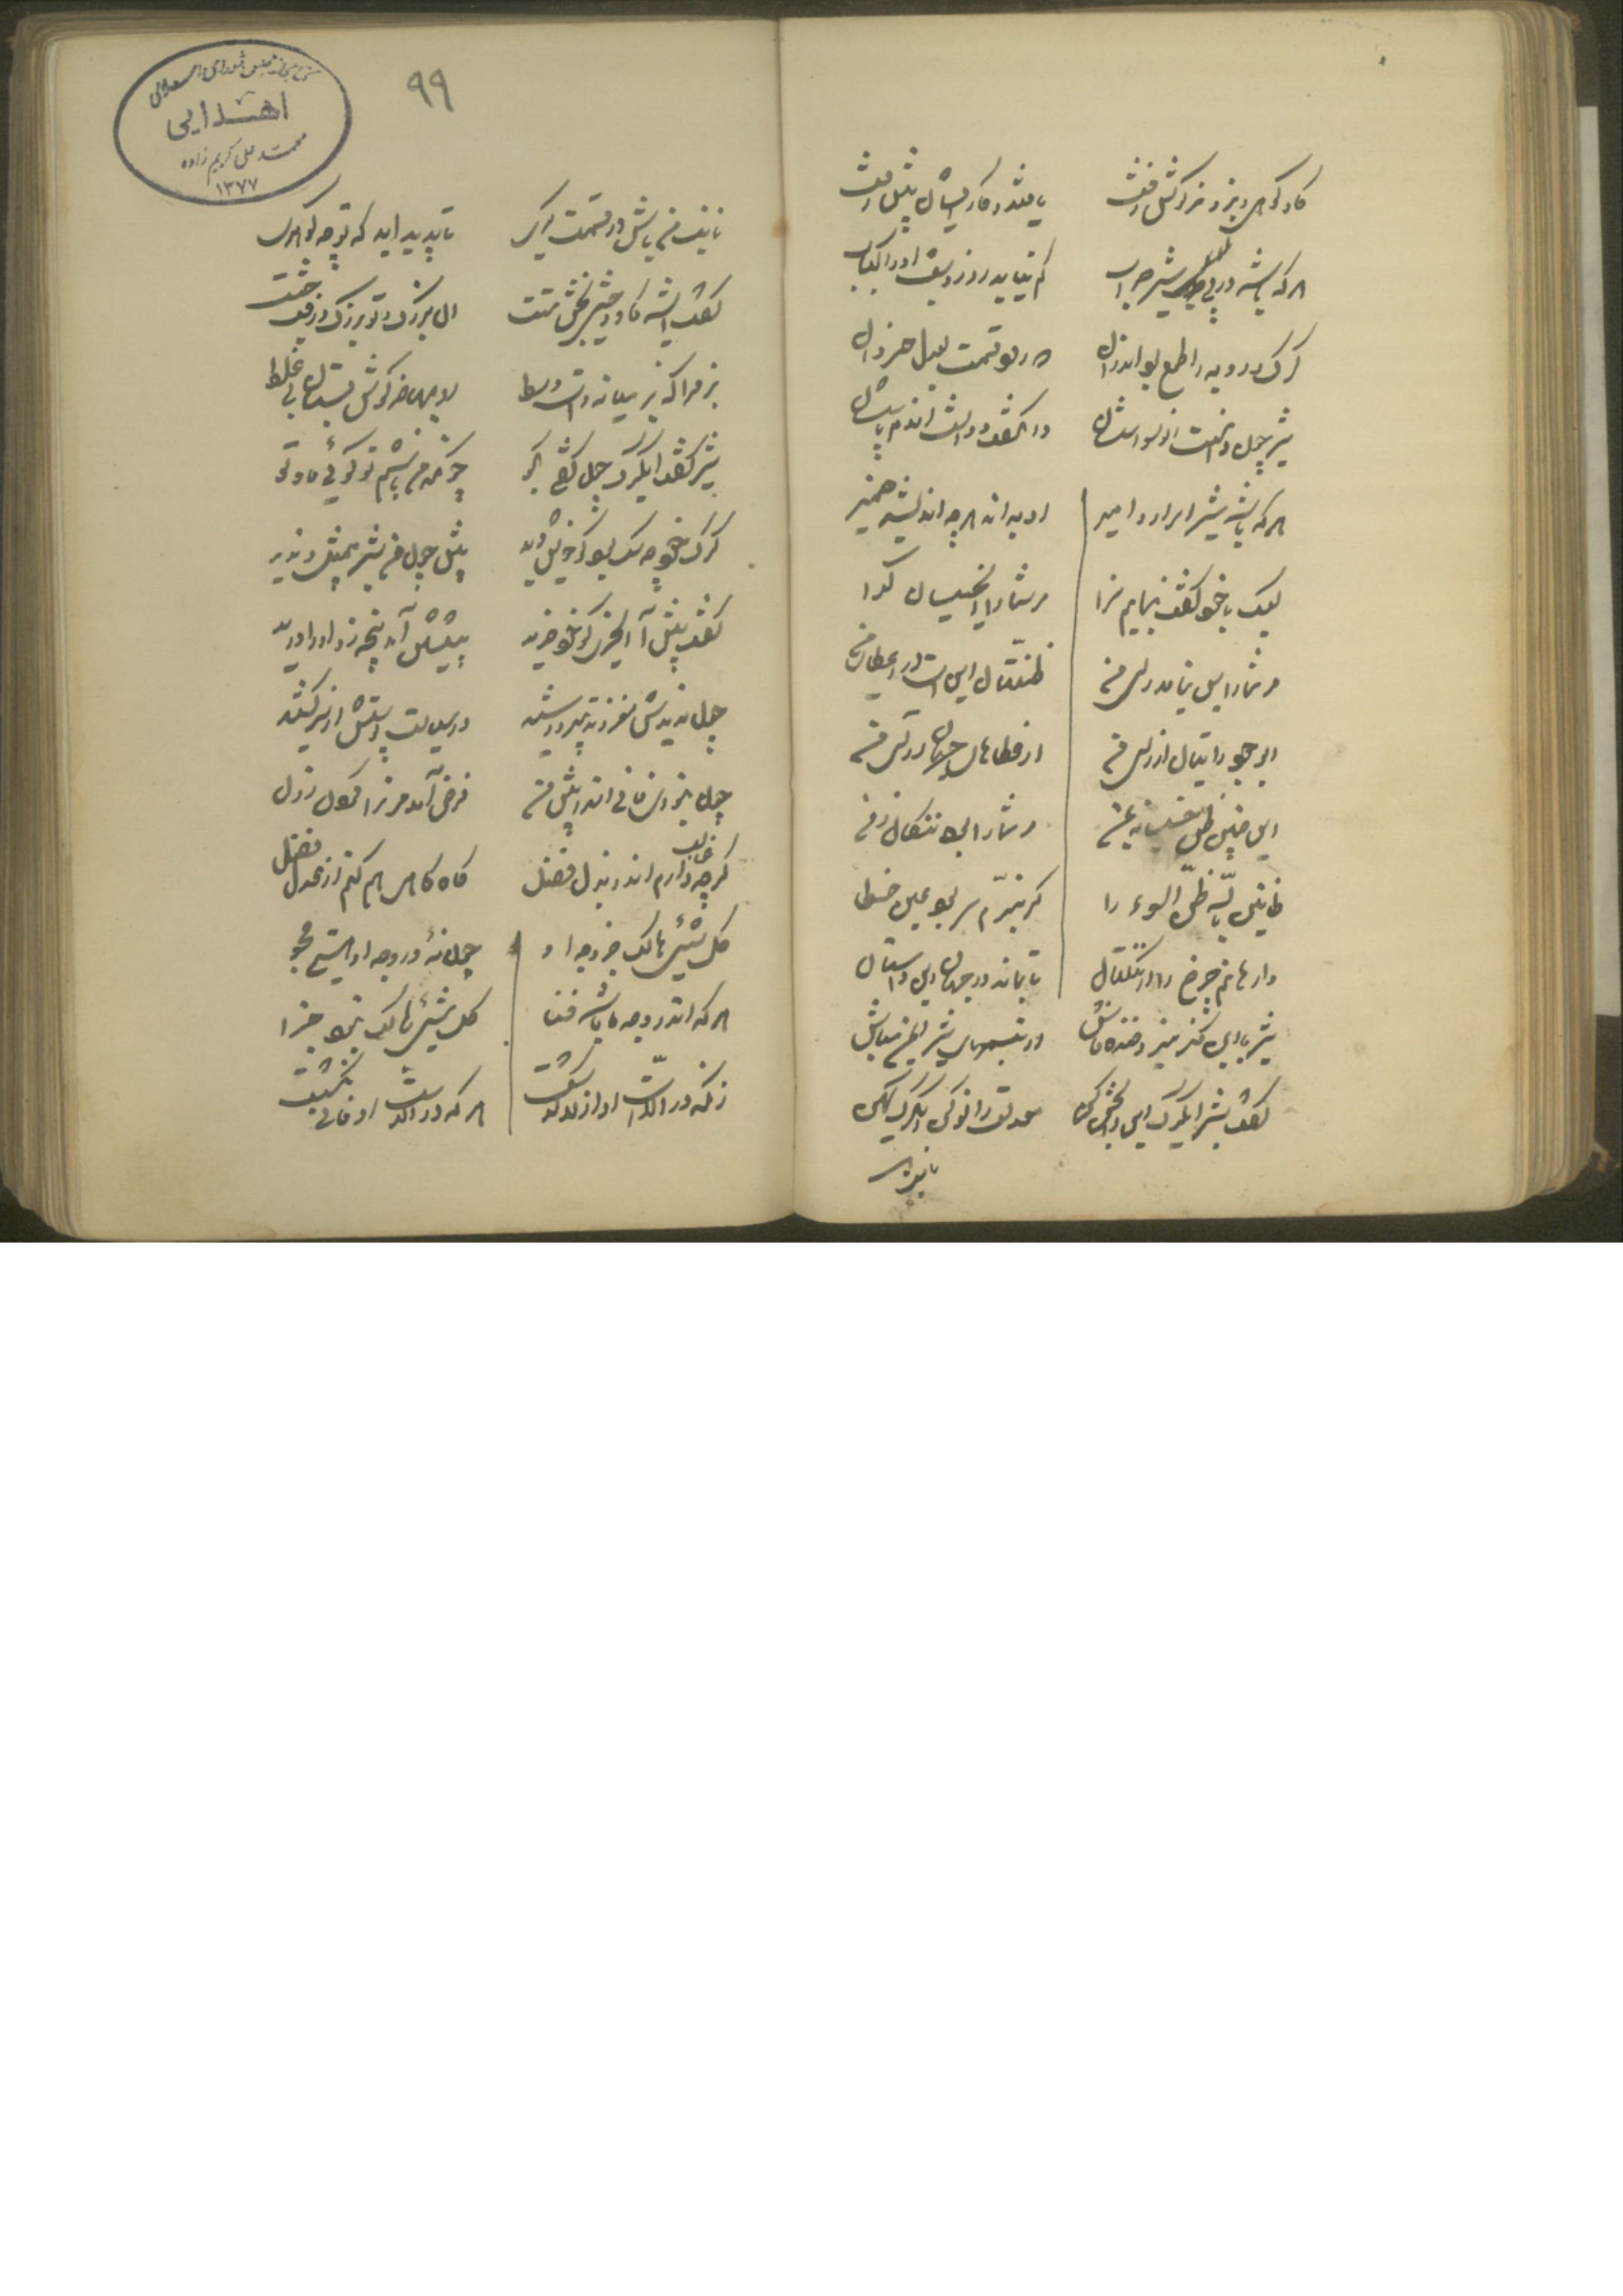 گاو کوهی و بز و خرگوش زفت    یافتند و کار ایشان پیش رفت
هر که باشد در پی شیر حراب    کم نیاید روز و شب او را کباب
گرگ و روبه را طمع بود اندر آن    که رود قسمت بعدل خسروان
شیر چون دانست آن وسواسشان    وا نگفت و داشت آندم پاسشان
هر که باشد شیر اسرار و امیر    او بداند هر چه اندیشد ضمیر
لیک با خود گفت بنمایم سزا    مر شما را ای خسیسان گدا
مر شما را بس نیامد رای من    ظنتان این است در اعطای من
ای وجود رایتان از رای من    از عطاهای جهان آرای من
این چنین ظن خسیسانه بمن    مر شما را بود ننگان زمن
ظانین بالله ظن السوء را    گر نبرم سر بود عین خطا
وا رهانم چرخ را از ننگتان    تا بماند در جهان این داستان
شیر با این فکر میزد خنده فاش    در تبسمهای شیر ایمن مباش
گفت شیر ای گرگ این را بخش کن    معدلت را نو کن ای گرگ کهن
نایب من
۹۹
اهدایی
محمد علی کریم زاده
۱۳۷۷
نایب من باش در قسمت گری    تا پدید آید که تو چه گوهری
گفت ای شه گاو وحشی بخش تست    آن بزرگ و تو بزرگ و زفت و چست
بز مرا که بز میانه است و وسط    روبها خرگوش بستان بی غلط
شیر گفت ای گرگ چون گفتی بگو    چونکه من باشم تو گوئی ما و تو
گرگ خود چه سگ بود کو خویش دید    پیش چون من شیر بیمثل و ندید
گفت پیش آ ای خری کو خود خرید    پیشش آمد پنجه زد او را درید
چون ندیدش مغز و تدبیر رشید    در سیاست پوستش از سر کشید
چون نبودی فانی اندر پیش من    فرض آمد مر ترا گردن زدن
گرچه غالب دارم اندر بذل فضل    گاه گاهی هم کنم از عدل فصل
کل شئی هالک جز وجه او    چون نهٔ در وجه او هستی مجو
هر که اندر وجه ما باشد فنا    کل شئی هالک نبود جزا
زانکه در الاست او از لا گذشت    هر که در الاست او فانی نگشت